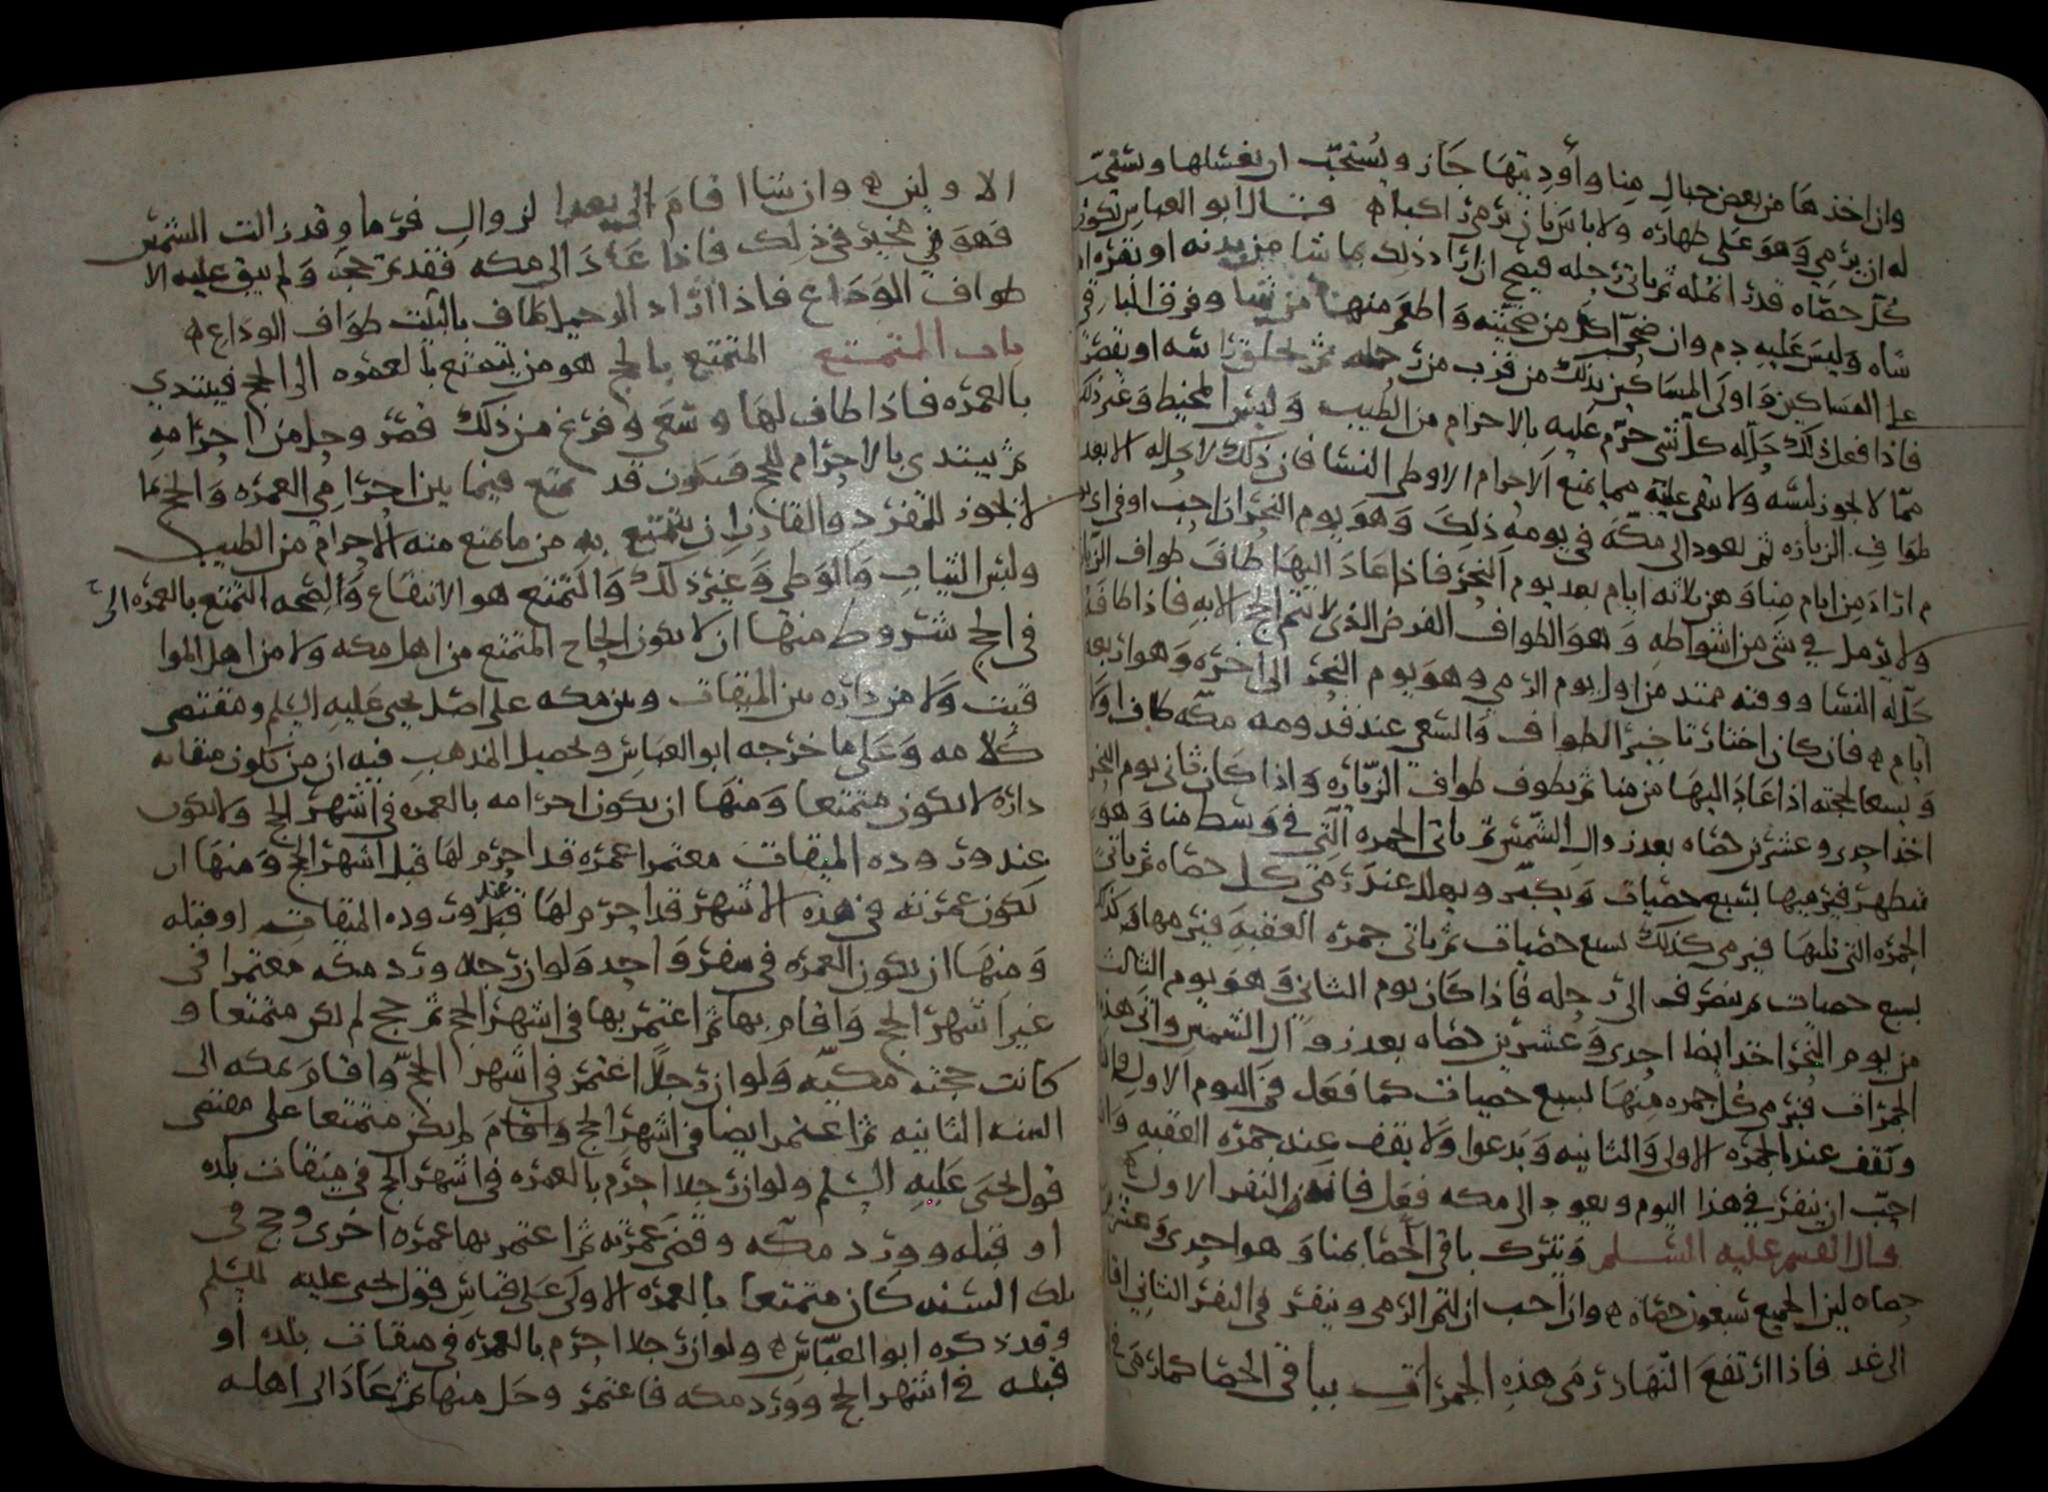 وان اخذها من بعض جبال منا وأوديتها جَاز ويُستحبّ ان يغسلها ويستنجى
له ان يرمي وَهوَ عَلى طهارَه ولا باس بان يرمى راكبا ه قال ابو العباس تكون
كُلّ حصَاه قدر انمله ثم ياتى رَحله فيضحى ان ارَاد ذلك بما شا من بدنه او بقرَه او
شاه وَليسَ عَليهِ دم وان ضحّى اكل من ضحيته وَاطعمَ منها من شا وفرق الباقى
على المسَاكين وَاولى المسَاكين بذلك من قرب من رَحله ثم يحلق رَاسه او يقصّر
فاذا فعل ذلك حَلّ له كل شى حرّم عَليهِ بالاحرام من الطيب وَلبس المخيط وَغير ذلك
ممّا لا يجوز لبسَه ولا يبقى عليه مما يمنع الاحرام الا وطى النسا فان ذلك لا يحل له الا بعد
طوَافِ الزيارَه ثم يعود الى مكّه في يومهِ ذلكَ وَهوَ يوم النحر ان احبّ او في اى يوم
ارَادَ من ايام مِنا وَهى ثلاثه ايام بعد يوم النَحر فاذا عَادَ اليهَا طافَ طواف الزيارَه
ولا يرمل في شى من اشواطهِ وَهوَ الطواف الفرض الذى لا يتم الحج الا به فاذا طافَه
حَلّ له النسا ووقته ممتد من اول يوم الرمي وهوَ يوم النحر الى اخره وَهو اربعه
ايام ه فان كان اختار تاخير الطواف وَالسعي عند قدومه مكّه طاف اولا
وَيسعا لحجته اذا عَادَ اليهَا من منا ثم يطوف طواف الزيّارَه وَاذا كَان ثانى يوم النحر
اخذ احدى وعشرين حصَاه بعد زوال الشمس ثم ياتى الجمره الّتى في وَسط منا وَهوَ
متطهر فيرميها بسبع حصَيات وَيكبّر ويهلل عند رَمى كل حصَاه ثم ياتى
الجمرَه التى تليهَا فيرمى كذلك بسبع حصَيات ثم ياتى جمرَه العقبهِ فيرميهَا كذلك
بسبع حصيات ثم ينصرف الى رَحله فاذا كَان يوم الثانى وَهوَ يوم الثالث
من يوم النحر اخذ ايضا احدى وَعشرين حصَاه بعد زوال الشمس واتى هذه
الجمرات فيرمى كل جمره مِنهَا بسبع حصيات كما فعَل فى اليوم الاول
وَيقف عند الجمرَه الاولى وَالثانيه وَيَدعوا وَلا يقف عِند جمرَه العقبهِ
احبّ ان ينفر فى هذا اليوم ويعود الى مكه فعَل فانه النفر الاول ه
قال القسم عليه السَّلم وَيترك باقى الحصَا بمنا وَهو احدى وَعشرين
حصاه لان الجميع سَبعون حصَاه ه وان احب ان يتم الرمى وينفر في النفر الثاني اقام
الى غد فاذا ارتفعَ النّهار رَمى هذهِ الجمراتِ بباقى الحصَا كما رَمى فى
الاولين ه وان شا اقامَ الى بعد الزوالِ فرمَا وقد زالت الشمس
فَهوَ مخيّر في ذلك فاذا عَادَ الى مكه فقد تم حجه وَلم يبق عليه الا
طواف الوَدَاع فاذا ارَاد الرحيل طاف بالبَيت طوَاف الودَاع ه
باب المتمتع المتمتع بالحج هو من يتمتع بالعمره الى الحج فيبتدي
بالعمرَه فاذا طاف لهَا وسَعَى وفرَغ من ذلك قصّر وحل من احرَامهِ
ثم يبتدى بالاحرام للحج فيكون قد تمتع فيما بين احرَامي العمرَه وَالحج بما
لا يجوز للمفرد والقارن ان يتمتع به من ما يمنع منه الاحرام من الطيب
ولبس الثيابِ وَالوطى وَغير ذلك وَالتمتع هو الانتفاع وَالصحه التمتع بالعمرَه الى
في الحج شروط منها ان لا يكون الحاج المتمتع من اهل مكه ولا من اهل الموا
قيت وَلا من دارَه بين الميقات وبين مكه على اصل يحيى عَليهِ السَّلم ومقتضى
كلامه وَعَلى ما خرجه ابو العباس وتحصيل المذهب فيه ان من يكون ميقاته
دارَه لا يكون متمتعا وَمنهَا ان يكون احرامه بالعمره في اشهر الحج ولا يكون
عند وروده الميقات معتمرا عمره قد احرم لهَا قبل اشهر الحج وَمنهَا ان
تكون عمرته في هذه الاشهر قد احرم لهَا عند وروده الميقات او قبله
وَمنهَا ان يكون العمره في سفر وَاحد وَلو ان رَجلا ورد مكه معتمرا في
غير اشهر الحج وَاقام بها ثم اعتمر بها في اشهر الحج ثم حج لم يكن متمتعا و
كانت حجته مكّيه وَلو ان رَجلاً اعتمر في اشهر الحجّ واقامَ بمكه الى
السنه الثانيه ثم اعتمر ايضا في اشهر الحج واقامَ لم يكن متمتعا على مقتضى
قول يحيى عَليهِ السَّلم ولو ان رَجلا احرم بالعمره في اشهر الحج في ميقات بلده
او قبله وورد مكّه وقضى عمرته ثم اعتمر بها عمره اخرى وحج في
تلك السَنه كَان متمتعا بالعمره الاولى عَلى قياس قول يحيى عليه السَّلم
وقد ذكره ابو العبّاس ه ولو ان رَجلا احرم بالعمره في ميقات بلده أو
قبله في اشهر الحج وورد مكه فاعتمر وحَل منها ثم عَادَ الى اهله